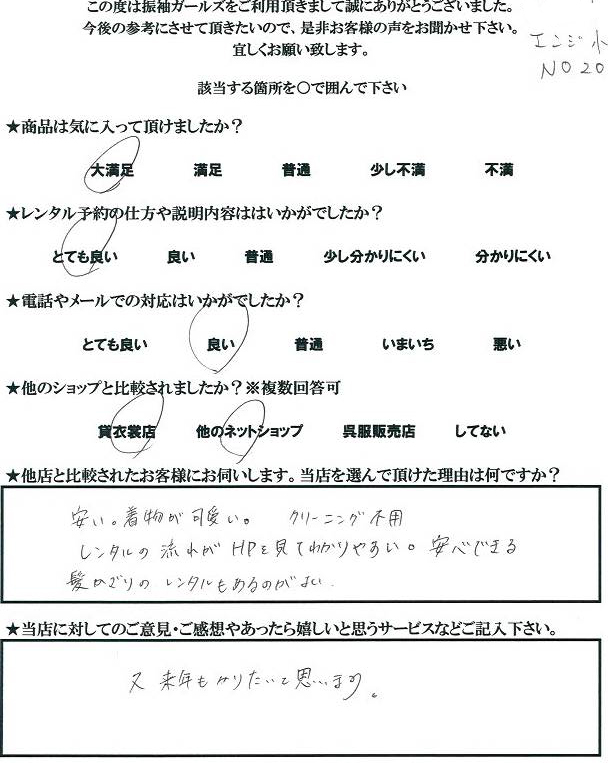 この度は振袖ガールズをご利用頂きまして誠にありがとうございました。
今後の参考にさせて頂きたいので、是非お客様の声をお聞かせ下さい。
宜しくお願い致します。
エンジ 小
NO 20
該当する箇所を〇で囲んで下さい
★商品は気に入って頂けましたか？
大満足 満足 普通 少し不満 不満
★レンタル予約の仕方や説明内容ははいかがでしたか？
とても良い 良い 普通 少し分かりにくい 分かりにくい
★電話やメールでの対応はいかがでしたか？
とても良い 良い 普通 いまいち 悪い
★他のショップと比較されましたか？※複数回答可
貸衣裳店 他のネットショップ 呉服販売店 してない
★他店と比較されたお客様にお伺いします。当店を選んで頂けた理由は何ですか？
安い。着物が可愛い。 クリーニング不用
レンタルの流れがHPを見てわかりやすい。安心できる
髪かざりのレンタルもあるのがよい.
★当店に対してのご意見・ご感想やあったら嬉しいと思うサービスなどご記入下さい。
又来年もかりたいと思います。